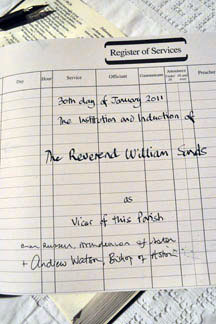 Register of Services
Day Hour Service Officiant Communicants Attendance Preacher
30th day of January 2011
The Institution and Induction of
The Reverend William Sands
as
Vicar of this Parish
of Aston
+ Andrew Watson, Bishop of Aston